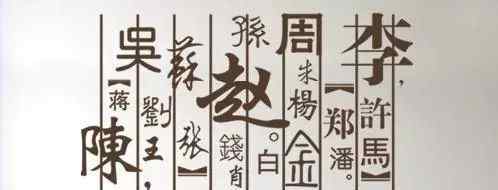 李,
許馬】
【郑潘。
周朱楊金
孫赵。白
錢肖
蘇张】
吳劉王,
【蒋陳